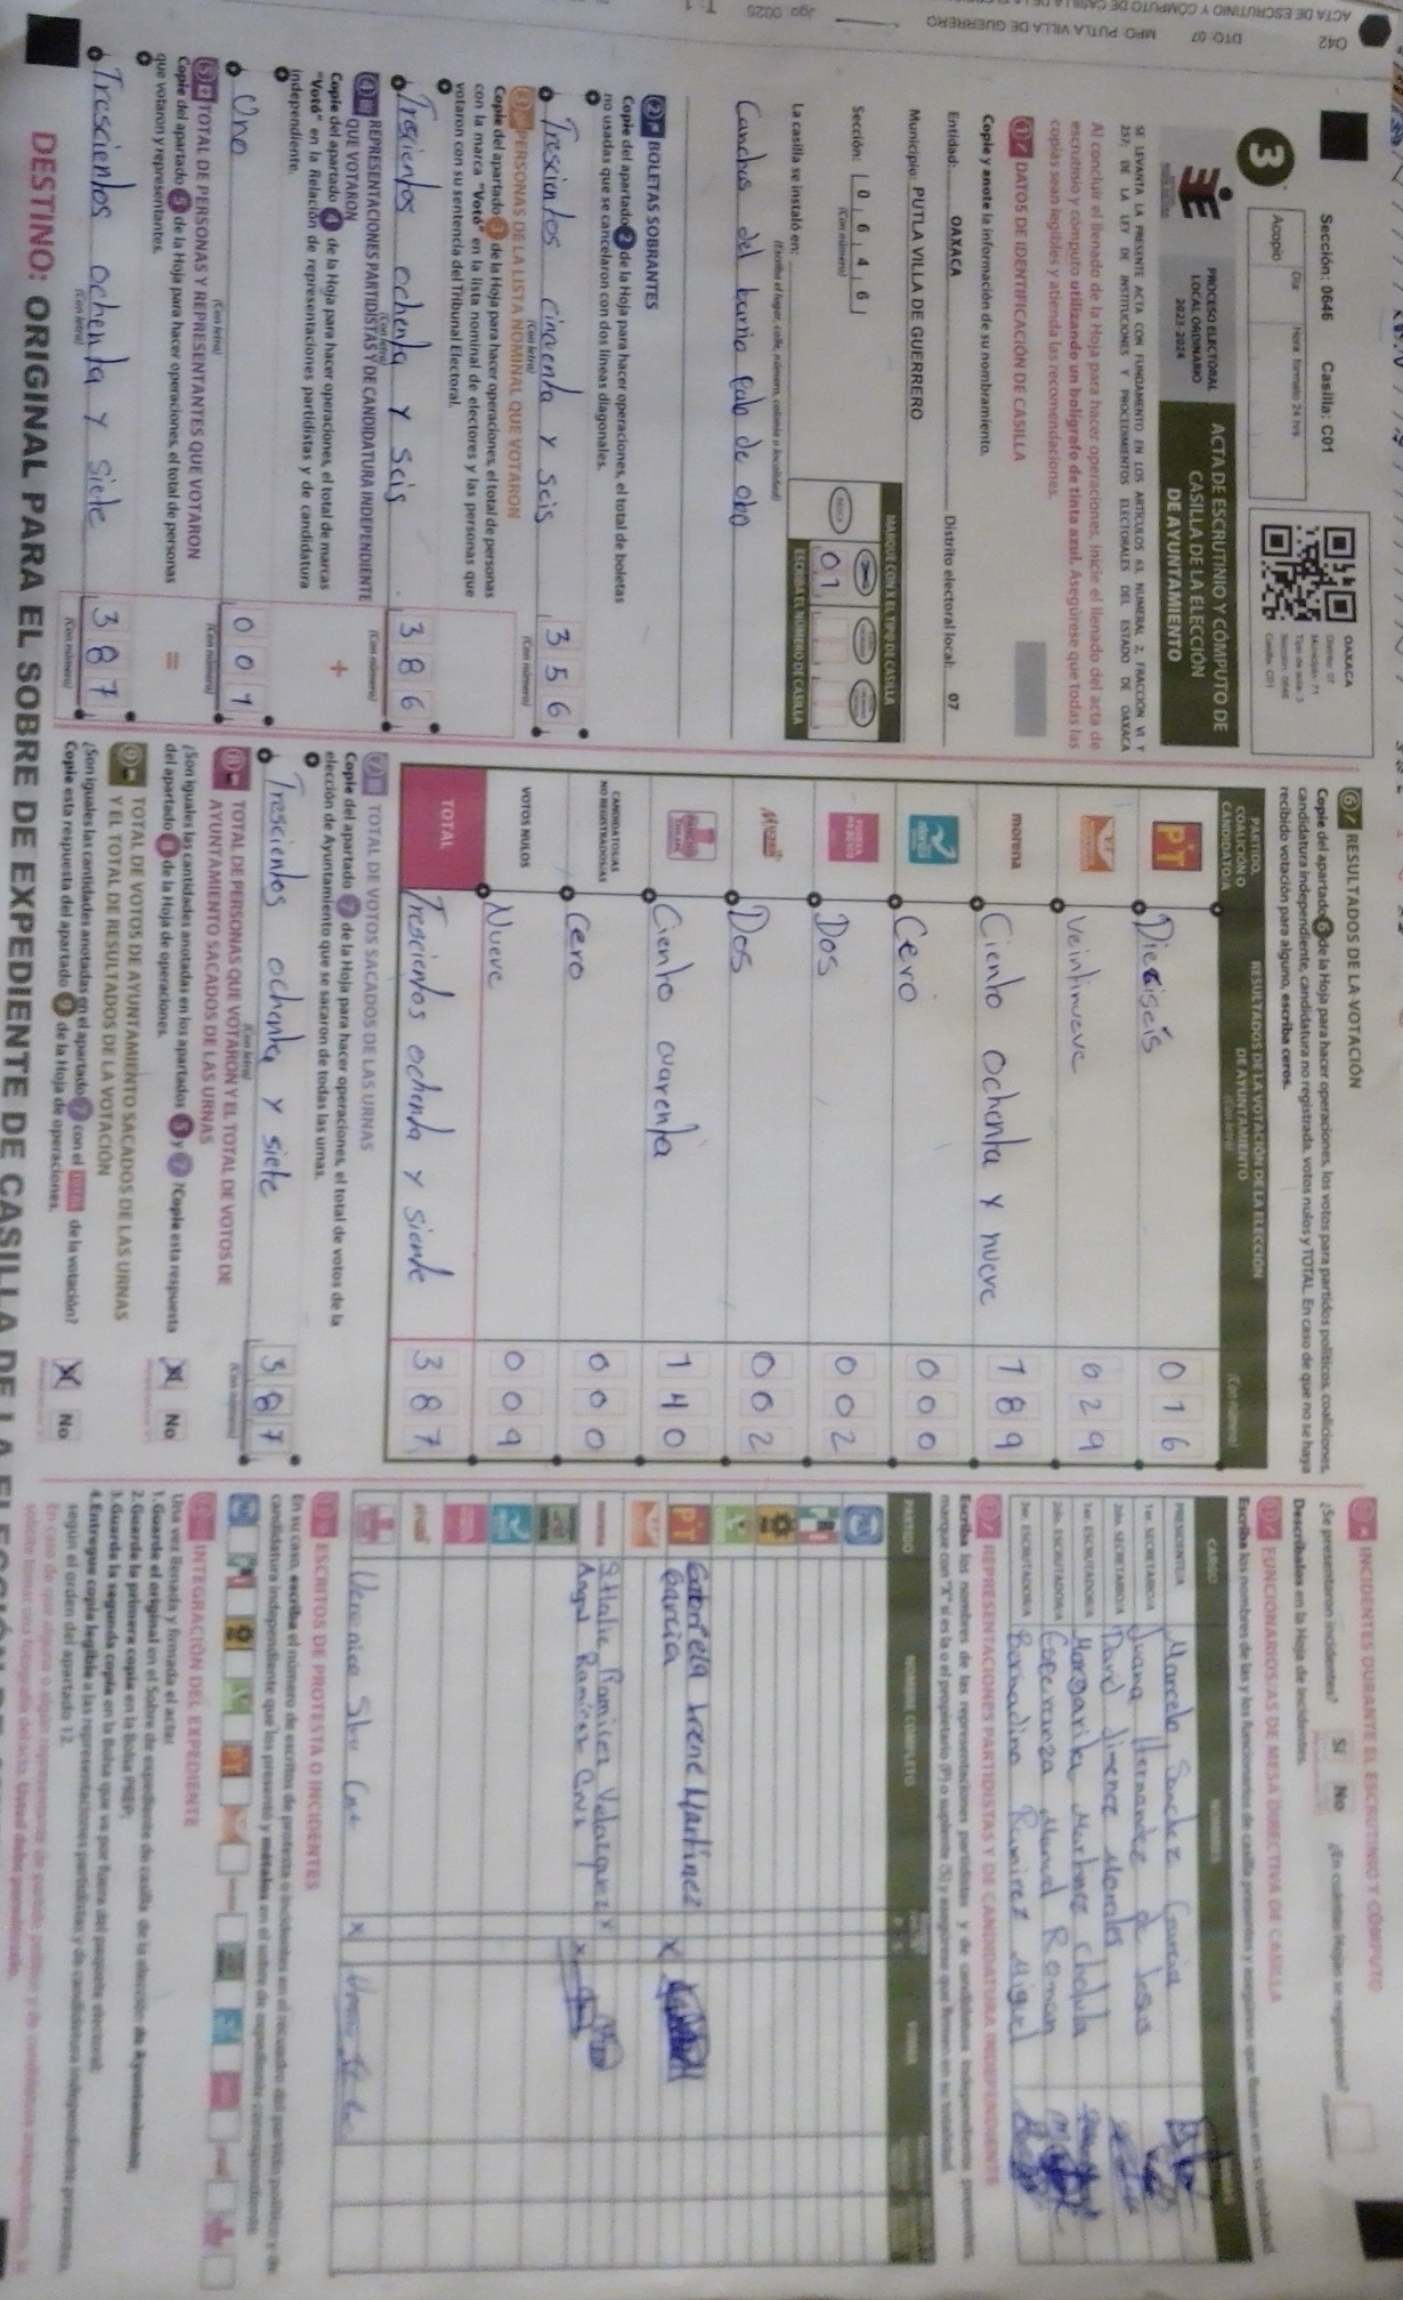 042
DTO. 07
MPO. PUTLA VILLA DE GUERRERO
Sección: 0646 Casilla: C01
3
Día
Hora formato 24 hrs
Acopio
OAXACA
Distrito: 07
Municipio: 71
Sección: 0646
Casilla: C01
PROCESO ELECTORAL
LOCAL ORDINARIO
2023-2024
ACTA DE ESCRUTINIO Y CÓMPUTO DE
CASILLA DE LA ELECCIÓN
DE AYUNTAMIENTO
SE LEVANTA LA PRESENTE ACTA CON FUNDAMENTO EN LOS ARTÍCULOS 63, NUMERAL 2, FRACCIÓN VI Y
237; DE LA LEY DE INSTITUCIONES Y PROCEDIMIENTOS ELECTORALES DEL ESTADO DE OAXACA
Al concluir el llenado de la Hoja para hacer operaciones, inicie el llenado del acta de
escrutinio y cómputo utilizando un bolígrafo de tinta azul. Asegúrese que todas las
copias sean legibles y atienda las recomendaciones.
1 DATOS DE IDENTIFICACIÓN DE CASILLA
Copie y anote la información de su nombramiento.
Entidad: OAXACA Distrito electoral local: 07
Municipio: PUTLA VILLA DE GUERRERO
Sección: 0 6 4 6
(Con número)
MARQUE CON X EL TIPO DE CASILLA
01
ESCRIBA EL NÚMERO DE CASILLA
La casilla se instaló en:
(Escriba el lugar: calle, número, colonia o localidad)
Canchas del barrio Palo de obo
2 BOLETAS SOBRANTES
Copie del apartado 2 de la Hoja para hacer operaciones, el total de boletas
no usadas que se cancelaron con dos líneas diagonales.
Trescientos cincuenta y seis 356
(Con letra) (Con número)
3 PERSONAS DE LA LISTA NOMINAL QUE VOTARON
Copie del apartado 3 de la Hoja para hacer operaciones, el total de personas
con la marca "Votó" en la lista nominal de electores y las personas que
votaron con su sentencia del Tribunal Electoral.
Trescientos ochenta y seis 386
(Con letra) (Con número)
4 REPRESENTACIONES PARTIDISTAS Y DE CANDIDATURA INDEPENDIENTE
QUE VOTARON
Copie del apartado 4 de la Hoja para hacer operaciones, el total de marcas
"Votó" en la Relación de representaciones partidistas y de candidatura
independiente.
+
Uno 001
(Con letra) (Con número)
5 TOTAL DE PERSONAS Y REPRESENTANTES QUE VOTARON
Copie del apartado 5 de la Hoja para hacer operaciones, el total de personas
que votaron y representantes.
=
Trescientos ochenta y siete 387
(Con letra) (Con número)
6 RESULTADOS DE LA VOTACIÓN
Copie del apartado 6 de la Hoja para hacer operaciones, los votos para partidos políticos, coaliciones,
candidatura independiente, candidatura no registrada, votos nulos y TOTAL. En caso de que no se haya
recibido votación para alguno, escriba ceros.
PARTIDO,
COALICIÓN O
CANDIDATO/A
RESULTADOS DE LA VOTACIÓN DE LA ELECCIÓN
DE AYUNTAMIENTO
(Con letra) (Con número)
PT Dieciseis 016
Veintinueve 029
morena Ciento ochenta y nueve 189
Cero 000
FUERZA MÉXICO Dos 002
Mujer Dos 002
Ciento cuarenta 140
CANDIDATOS/AS
NO REGISTRADOS/AS Cero 000
VOTOS NULOS Nueve 009
TOTAL Trescientos ochenta y siente 387
7 TOTAL DE VOTOS SACADOS DE LAS URNAS
Copie del apartado 7 de la Hoja para hacer operaciones, el total de votos de la
elección de Ayuntamiento que se sacaron de todas las urnas.
Trescientos ochenta y siete 387
(Con letra) (Con número)
8 TOTAL DE PERSONAS QUE VOTARON Y EL TOTAL DE VOTOS DE
AYUNTAMIENTO SACADOS DE LAS URNAS
¿Son iguales las cantidades anotadas en los apartados 5 y 7? Copie esta respuesta
del apartado 8 de la Hoja de operaciones.
X No
9 TOTAL DE VOTOS DE AYUNTAMIENTO SACADOS DE LAS URNAS
Y EL TOTAL DE RESULTADOS DE LA VOTACIÓN
¿Son iguales las cantidades anotadas en el apartado 7 con el TOTAL de la votación?
Copie esta respuesta del apartado 9 de la Hoja de operaciones.
X No
INCIDENTES DURANTE EL ESCRUTINIO Y CÓMPUTO
¿Se presentaron incidentes? Sí No ¿En cuántas Hojas se registraron?
Descríbalos en la Hoja de incidentes.
FUNCIONARIOS/AS DE MESA DIRECTIVA DE CASILLA
Escriba los nombres de las y los funcionarios de casilla presentes y asegúrese que firmen en su totalidad.
CARGO NOMBRES
PRESIDENTE/A Marcelo Sanchez Garcia
1er. SECRETARIO/A Juana Hernandez de Jesus
2do. SECRETARIO/A David Jimenez Morales
1er. ESCRUTADOR/A Margarita Martinez Cholula
2do. ESCRUTADOR/A Esperanza Manuel Roman
3er. ESCRUTADOR/A Bernadino Ramirez Miguel
REPRESENTACIONES PARTIDISTAS Y DE CANDIDATURA INDEPENDIENTE
Escriba los nombres de las representaciones partidistas y de candidatura independiente presentes,
marque con "X" si es la o el propietario (P) o suplente (S) y asegúrese que firmen en su totalidad.
PARTIDO NOMBRE COMPLETO
PT Gabriela Irene Martínez
Garcia X
Ramirez Velazquez X
Angel Ramirez Cruz X
X
ESCRITOS DE PROTESTA O INCIDENTES
En su caso, escriba el número de escritos de protesta o incidentes en el recuadro del partido político y de
candidatura independiente que los presentó y métalos en el sobre de expediente correspondiente.
INTEGRACIÓN DEL EXPEDIENTE
Una vez llenada y firmada el acta:
1. Guarde el original en el Sobre de expediente de casilla de la elección de Ayuntamiento;
2. Guarde la primera copia en la Bolsa PREP;
3. Guarde la segunda copia en la Bolsa que va por fuera del paquete electoral;
4. Entregue copia legible a las representaciones partidistas y de candidatura independiente presentes,
según el orden del apartado 12.
DESTINO: ORIGINAL PARA EL SOBRE DE EXPEDIENTE DE CASILLA DE LA